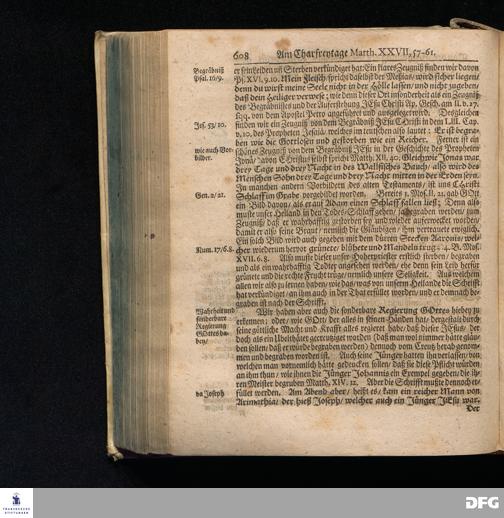 608 Am Charfreytage Matth. XXVII, 57-61.
Begräbniß er sein Leiden uñ Sterben verkündiget hat. Ein klares Zeugniß finden wir davon
Psal. 16/9. Ps. XVI, 9. 10. Mein Fleisch/ spricht daselbst der Meßias/ wird sicher liegen/
denn du wirst meine Seele nicht in der Hölle lassen/ und nicht zugeben/
daß dein Heiliger verwese; wie denn dieser Ort insonderheit als ein Zeugniß
des Begräbnisses und der Auferstehung JEsu Christi Ap. Gesch. am II. v. 27.
sqq. von dem Apostel Petro angeführet und ausgeleget wird. Desgleichen
Jes. 53/10. finden wir ein Zeugniß von dem Begräbniß JEsu Christi in dem LIII. Cap.
v. 10. des Propheten Jesaiä/ welches im teutschen also lautet: Er ist begra-
ben wie die Gottlosen und gestorben wie ein Reicher. Ferner ist ein
wie auch Vor- schönes Zeugniß von dem Begräbniß JEsu in der Geschichte des Propheten
bilder. Jonä/ davon Christus selbst spricht Matth. XII, 40. Gleichwie Jonas war
drey Tage und drey Nacht in des Wallfisches Bauch/ also wird des
Menschen Sohn drey Tage und drey Nacht mitten in der Erden seyn.
In manchen andern Vorbildern des alten Testaments/ ist uns Christi
Gen. 2/21. Schlaff im Grabe vorgebildet worden. Bereits 1. Mos. II, 21. gab GOtt
ein Bild davon/ als er auf Adam einen Schlaf fallen ließ; Denn also
muste unser Heiland in den Todes-Schlaf gehen/ ja begraben werden/ zum
Zeugniß/ daß er wahrhafftig gestorben sey und wieder auferwecket worden/
damit er also seine Braut/ nemlich die Gläubigen/ ihm vertrauete ewiglich.
Ein solch Bild wird auch gegeben mit dem dürren Stecken Aaronis/ wel-
Num. 17/6.8. cher wiederum hervor grünete/ blühete und Mandeln trug: 4. B. Mos.
XVII. 6. 8. Also muste dieser unser Hoherpriester erstlich sterben/ begraben
und als ein wahrhafftig Todter angesehen werden/ ehe denn sein Leib herfür
grünete und die rechte Frucht trüge/ nemlich unsere Seligkeit. Aus welchem
allen wir also zu lernen haben/ wie das/ was von unserm Heilande die Schrifft
hat verkündiget/ an ihm auch in der That erfüllet worden/ und er demnach be-
graben ist nach der Schrifft.
Wahrheit und Wir haben aber auch die sonderbare Regierung GOttes hiebey zu
sonderbare erkennen; oder/ wie GOtt der alles in seinen Händen hat/ dergestalt durch
Regierung seine göttliche Macht und Krafft alles regieret habe/ daß dieser JEsus/ der
GOttes ha- doch als ein Ubelthäter gecreutziget worden (daß man wol nimmer hätte gläu-
ben/ ben sollen/ daß er würde begraben werden) dennoch vom Creutz herab genom-
men und begraben worden ist. Auch seine Jünger hatten ihn verlassen/ von
welchen man vornemlich hätte gedencken sollen/ daß sie diese Pflicht würden
an ihm thun/ wie ihnen die Jünger Johannis ein Exempel gegeben/ die ih-
ren Meister begruben Matth. XIV. 12. Aber die Schrifft muste dennoch er-
da Joseph füllet werden. Am Abend aber/ heißt es/ kam ein reicher Mann von
Arimathia/ der hieß Joseph/ welcher auch ein Jünger JEsu war.
Der
FRANCKESCHE
STIFTUNGEN
DFG